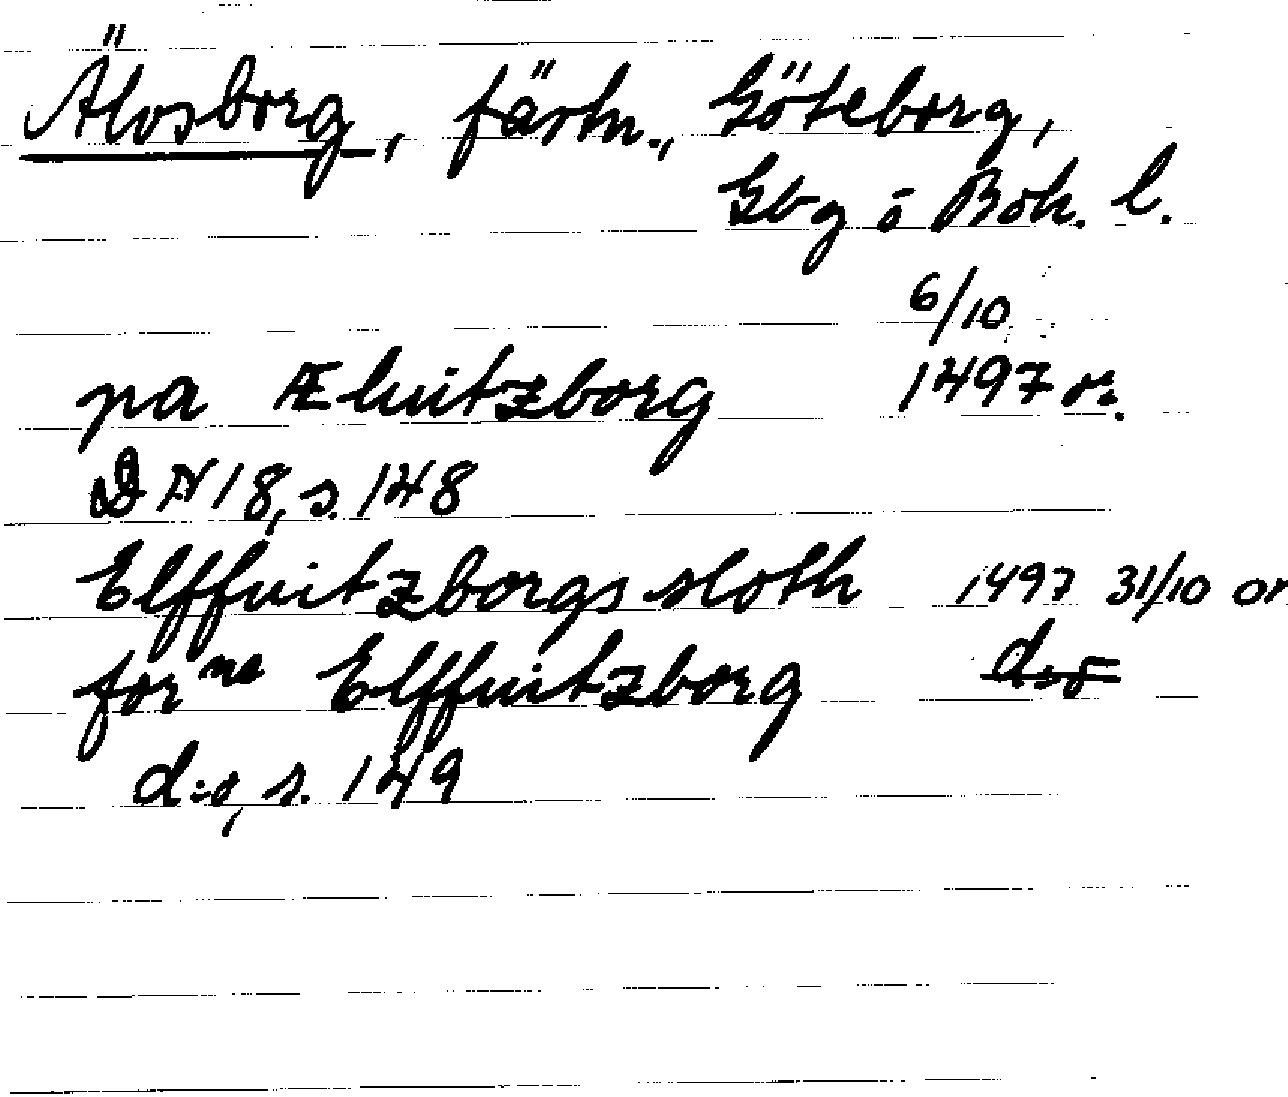 Älvsborg, fästn., Göteborg,
Gbg o Boh. l.
6/10
pa Æluitzborg 1497 or.
DN 18, s. 148
Elffuitzborgs sloth 1497 31/10 or
for ne Elffuitzborg d:o
d:o, s. 149